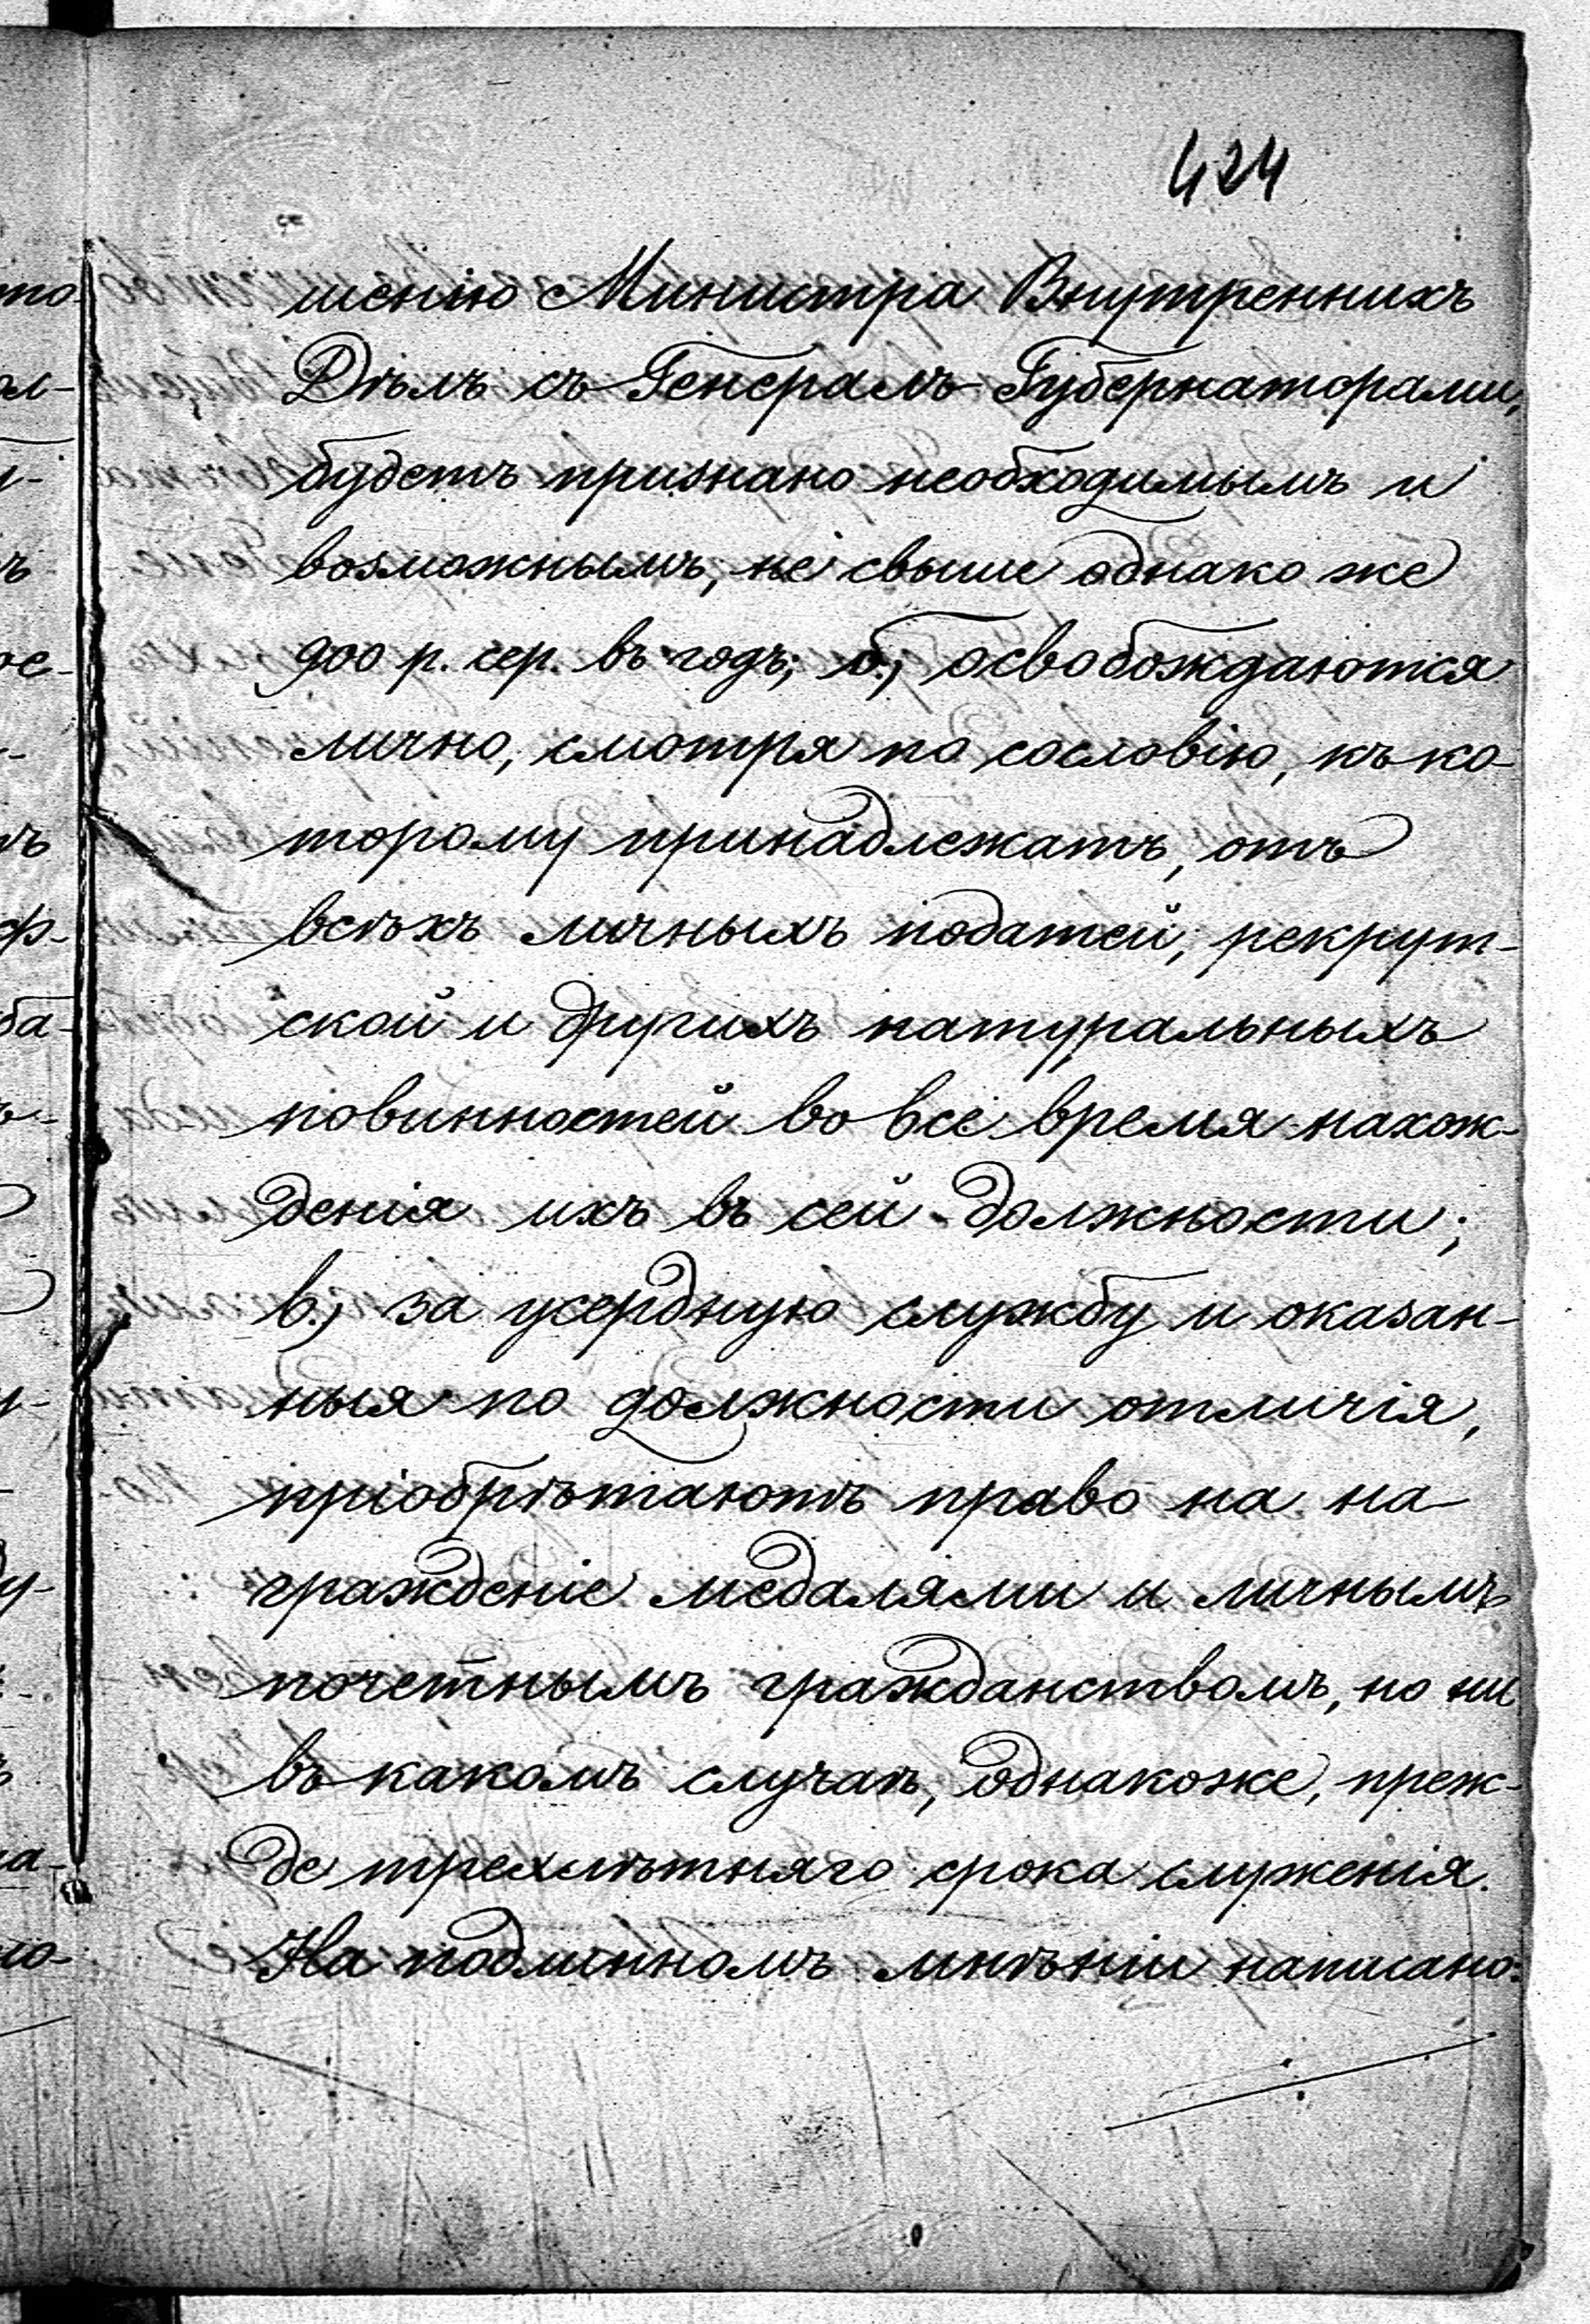 424
шенію Министра Внутреннихъ
Дѣлъ съ Генералъ Губернаторами,
будетъ признано необходимымъ и
возможнымъ, не свыше однако же
900 р. сер. въ годъ; б., освобождаются
лично, смотря по сословію, къ ко-
торому принадлежатъ, отъ
всѣхъ личныхъ податей, рекрут-
ской и другихъ натуральныхъ
повинностей во все время нахож-
денія ихъ въ сей должности;
в., за усердную службу и оказан-
ныя по должности отличія,
пріобрѣтаютъ право на на-
гражденіе медалями и личнымъ
почетнымъ гражданствомъ, но ни
въ какомъ случаѣ, однакоже, преж-
де трехлѣтняго срока служенія.
На подлинномъ мнѣніи написано: